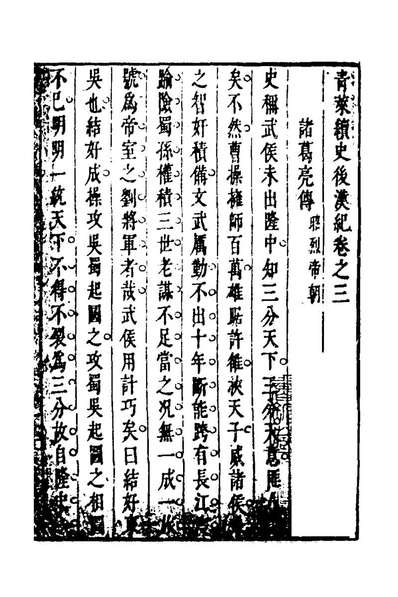 青萊續史後漢紀卷之三
諸葛亮傳 昭烈帝朝
史稱武侯未出隆中知三分天下三分大意
矣不然曹操擁師百萬雄踞許雒挾天子威諸侯
之智奸積備文武屬勤不出十年斷能跨有長江
踰險蜀孫權積三世老謀不足當之况無一成一旅
號為帝室之劉將軍者哉武侯用計巧矣曰結好東
吳也結好成操攻吳蜀起圖之攻蜀吳起圖之相圖
不已明明一統天下不得不裂為三分故自隆中